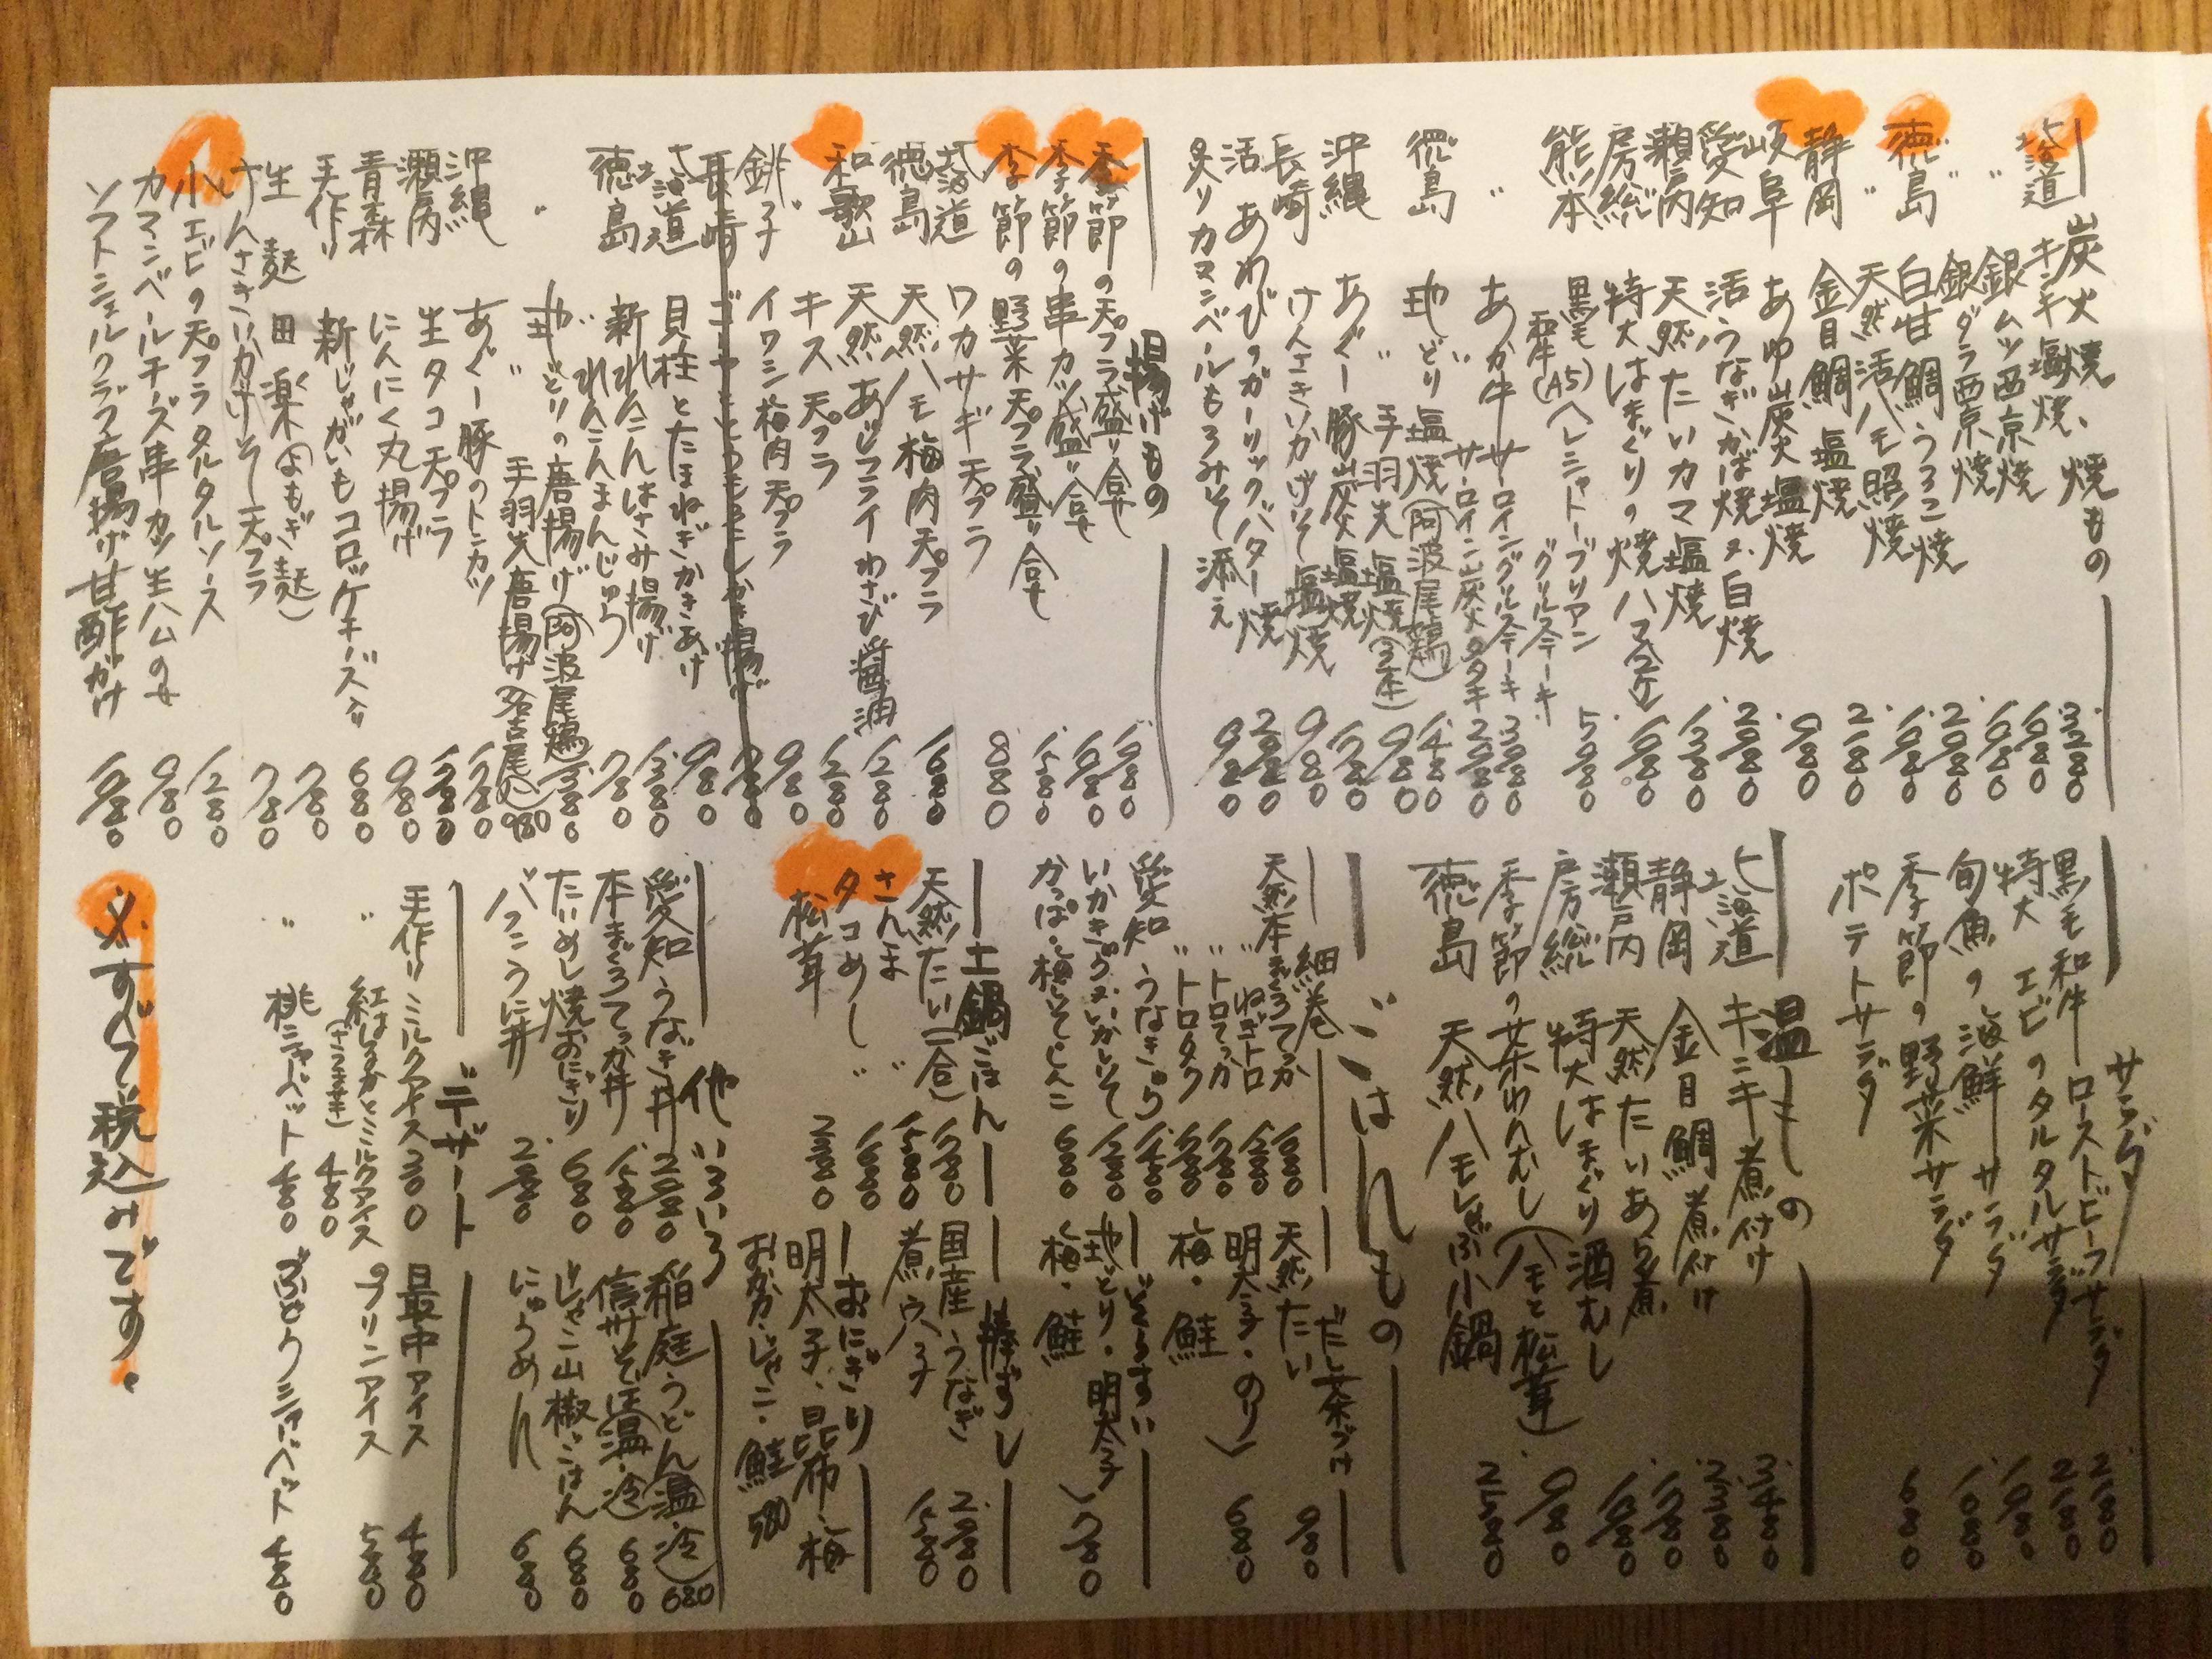 炭火焼、焼もの
北海道 キンキ塩焼 3280
〃 銀ムツ西京焼 1680
銀ダラ西京焼 1980
徳島 白甘鯛うろこ焼 2980
〃 天然活ハモ照焼 1980
静岡 金目鯛塩焼 2180
岐阜 あゆ炭火塩焼 980
愛知 活うなぎかば焼又は白焼 2980
瀬戸内 天然たいカマ塩焼 1380
房総 特大はまぐりの焼ハマ(2ケ) 1980
熊本 黒毛和牛(A5)ヘレシャトーブリアングリルステーキ 5980
〃 あか牛サーロイングリルステーキ 3980
サーロイン炭火タタキ 2980
徳島 地どり塩焼(阿波尾鶏) 1480
〃 手羽先塩焼(3本) 980
沖縄 あぐー豚炭火塩焼 1780
長崎 けんさきいかげそ塩焼 980
活あわびのガーリックバター焼 2980
炙りカマンベールもろみそ添え 980
揚げもの
季節の天プラ盛り合せ 1980
季節の串カツ盛り合せ 1980
季節の野菜天プラ盛り合せ 1580
北海道 ワカサギ天プラ 880
徳島 天然ハモ梅肉天プラ 1680
和歌山 天然あじフライわさび醤油 1280
〃 キス天プラ 1280
銚子 イワシ梅肉天プラ 980
長崎 ゴーヤととうもろこしかき揚げ
北海道 貝柱とたまねぎかきあげ 980
徳島 新れんこんはさみ揚げ 1380
〃 れんこんまんじゅう 780
〃 地どりの唐揚げ(阿波尾鶏) 1380
〃 手羽先唐揚げ(名古屋) 980
沖縄 あぐー豚のトンカツ 1780
瀬戸内 生タコ天プラ 1780
青森 にんにく丸揚げ 980
手作り 新じゃがいもコロッケチーズ入り 680
生麩田楽(よもぎ麩) 780
けんさきいかげそ天プラ 780
小エビの天プラタルタルソース 1280
カマンベールチーズ串カツ生ハムのせ 980
ソフトシェルクラブ唐揚げ甘酢がけ 1980
サラダ
黒毛和牛ローストビーフサラダ 2180
特大エビのタルタルサラダ 2180
旬魚の海鮮サラダ 1980
季節の野菜サラダ 1080
ポテトサラダ 680
温もの
北海道 キンキ煮付け 3480
静岡 金目鯛煮付け 2380
瀬戸内 天然たいあら煮 1780
房総 特大はまぐり酒むし 1980
季節の茶わんむし(ハモと松茸) 980
徳島 天然ハモしゃぶ小鍋 2580
ごはんもの
細巻
天然本まぐろてっか 1680
〃 ねぎトロ 1280
〃 トロてっか 1780
〃 トロタク 1780
愛知 うなきゅう 1480
いかきゅう又はいかしそ 1280
かっぱ・梅しそ・しんこ 680
だし茶づけ
天然たい 980
明太子・のり
梅・鮭 680
ぞうすい
地どり・明太子
梅・鮭 780
土鍋ごはん
天然たい(一合) 1780
さんま 〃 1580
タコめし 〃 1680
松茸 2980
棒ずし
国産うなぎ 2980
煮穴子 1580
おにぎり
明太子・昆布・梅
おかか・じゃこ・鮭 580
他いろいろ
愛知うなぎ丼 2980
本まぐろてっか丼 1580
たいめし焼おにぎり 680
バフンうに丼 2980
稲庭うどん(温・冷) 680
信州そば(温・冷) 680
じゃこ山椒ごはん 680
にゅうめん 680
デザート
手作り ミルクアイス 300
〃 紅はるかとミルクアイス(さつま芋) 480
〃 桃シャーベット 480
最中アイス 480
プリンアイス 580
ぶどうシャーベット 480
※すべて税込みです。